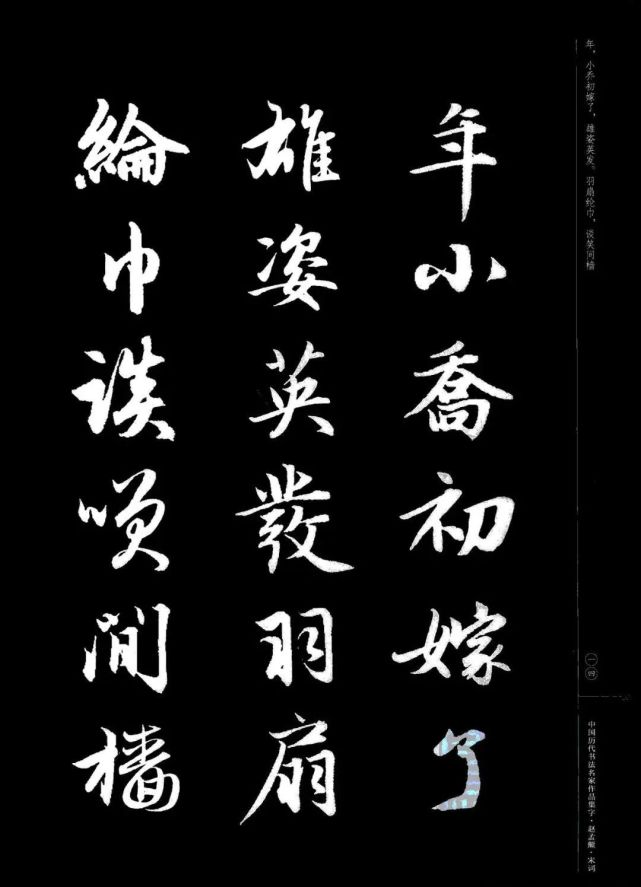 年小喬初嫁了
雄姿英發羽扇
綸巾談笑間檣
年，小乔初嫁了，雄姿英发。羽扇纶巾，谈笑间樯
一四
中国历代书法名家作品集字·赵孟頫·宋词